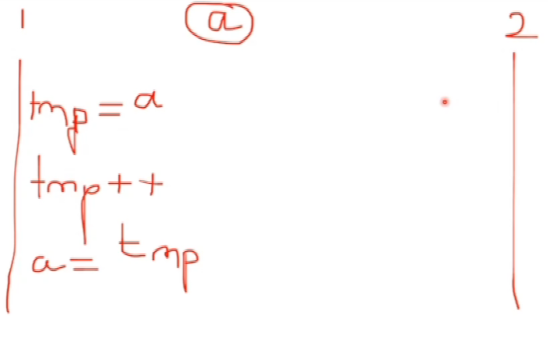 1 a 2
tmp = a
tmp++
a = tmp